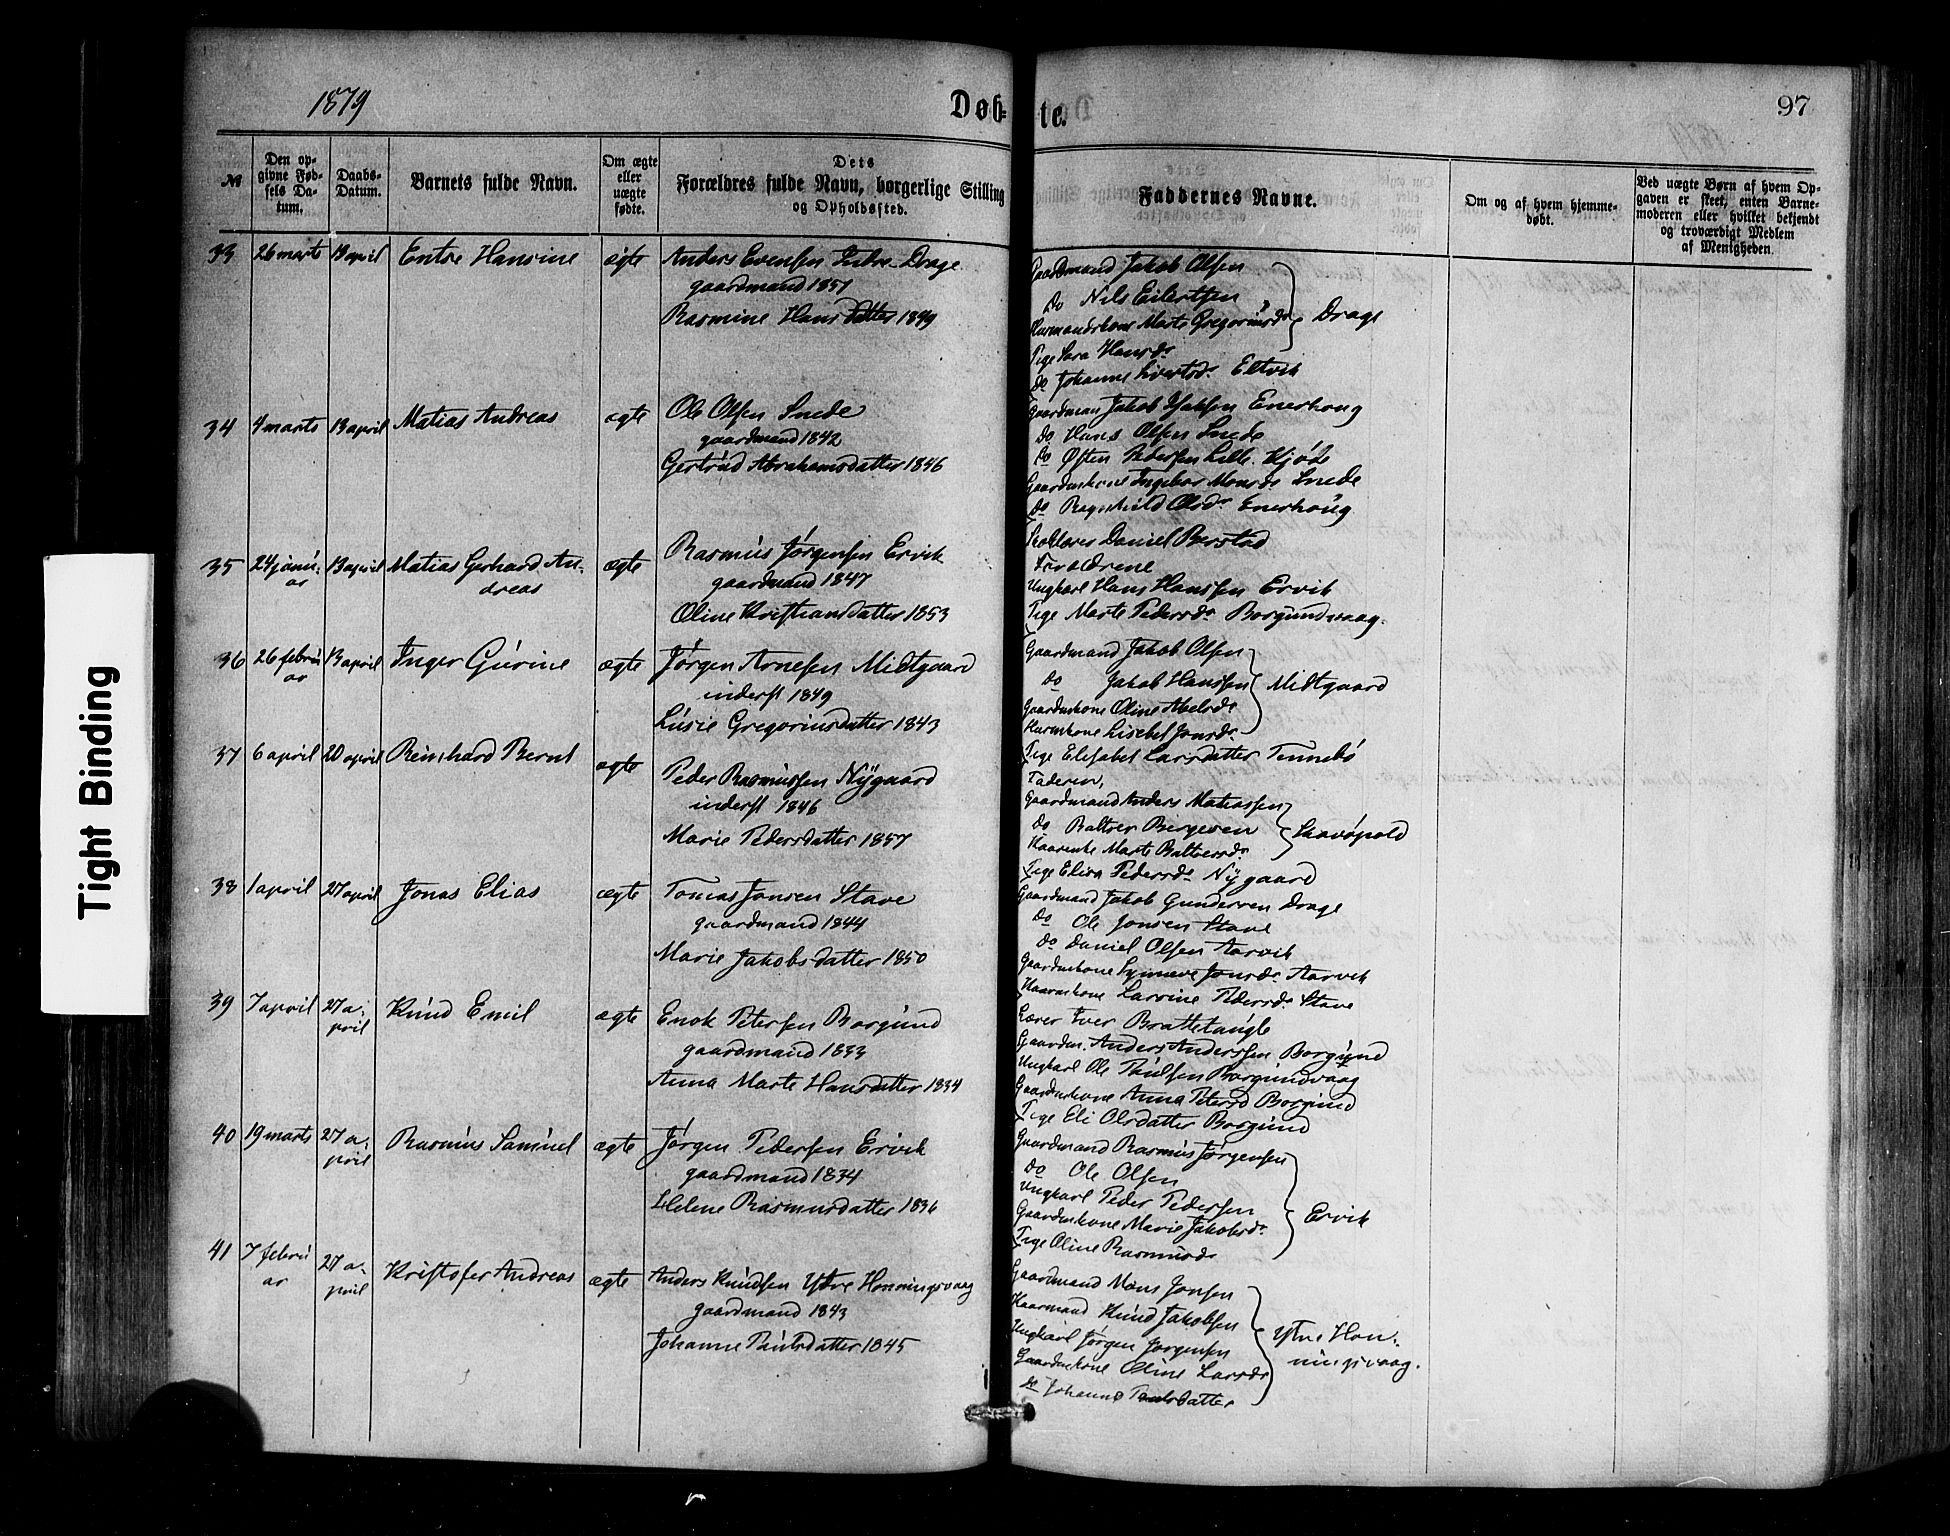 1879
Døb-
te.
97
№
Den op-
givne Fød-
sels Da-
tum.
Daabs-
Datum.
Barnets fulde Navn.
Om ægte
eller
uægte
fødte.
Dets
Forældres fulde Navn, borgerlige Stilling
og Opholdssted.
Faddernes Navne.
Om og af hvem hjemme-
døbt.
Ved uægte Børn af hvem Op-
gaven er skeet, enten Barne-
moderen eller hvilket bekjendt
og troværdigt Medlem
af Menigheden.
33 26 marts 13 april Hansine ægte Anders Evensen Indre Drage
gaardmand 1851
Rasmine Hansdatter
Gaardmand Jakob Olsen
Do Nils Eilertsen
Marte Gregoriusdr Drage
Pige Sara Hansdr
do Johanne
34 4 marts 13 april Matias Andreas ægte Ole Olsen
gaardmand 1842
Gertrud Abrahamsdatter 1846
Gaardman Jakob Enerhoug
Do Hans Olsen
Do Østen Pedersen Lille
Gaardmkone Ingebor Monsdr
Do Olsdr Enerhoug
35 24 janu- 13 april Matias Gerhard An-
ar dreas ægte
Rasmus Jørgensen Ervik
gaardmand 1847
Oline Kristiansdatter 1853
Daniel Berstad
Forældrene
Ungkarl Hans Hanssen Ervik
Pige Marte Pedersdr Borgundvaag.
36 26 febru- 13 april Inger Gurine ægte Jørgen Arnesen Midtgaard
ar inderst 1849
Lusie Gregoriusdatter 1843
Gaardmand Jakob Olsen
Do Jakob Hanssen Midtgaard
Gaardmkone Oline Abelsdr
Lisebet Jonsdr
Pige Elisabet Larsdatter Tennebø
37 6 april 20 april Reinhard Bernt ægte Peder Rasmussen Nygaard
inderst 1846
Marie Pedersdatter 1857
Faderen,
Gaardmand Anders Matiassen
Do Baltser
Marte Baltsersdr
Pige Elisa Pedersdr Nygaard
38 1 april 27 april Jonas Elias ægte Tomas Jonsen Stave
gaardmand 1844
Marie Jakobsdatter 1850
Gaardmand Jakob Gundersen Drage
Do Ole Jonsen Stave
do Daniel Olsen Aarvik
Gaardmkone Jonsdr Aarvik
Pedersdr Stave
39 7 april 27 a- Knud Emil ægte Enok Petersen Borgund
pril gaardmand 1833
Anna Marte Hansdatter 1834
Lærer Iver Brattetaugle
Gaardm. Anders Anderssen Borgund
Ungkarl Ole Paulsen Borgundvaag
Gaardmkone Anna Petersd Borgund
Pige Eli Olsdatter Borgund
40 19 marts 27 a- Rasmus Samuel ægte Jørgen Pedersen Ervik
pril gaardmand 1834
Helene Rasmusdatter 1836
Gaardmand Rasmus Jørgensen
Do Ole Olsen
Ungkarl Peder Pedersen
Gaardmkone Marie Jakobsdr Ervik
Pige Oline Rasmusdr
41 7 febru- 27 a- Kristofer Andreas ægte Anders Knudsen Ytre Honningsvaag
ar pril gaardmand 1843
Johanne Paulsdatter 1845
Gaardmand Mons Jonsen
Knud Jakobsen
Ungkarl Jørgen Jørgensen Ytre Hon-
Gaardmkone Oline Larsdr ningsvaag.
do Johanne Paulsdatter
Tight Binding